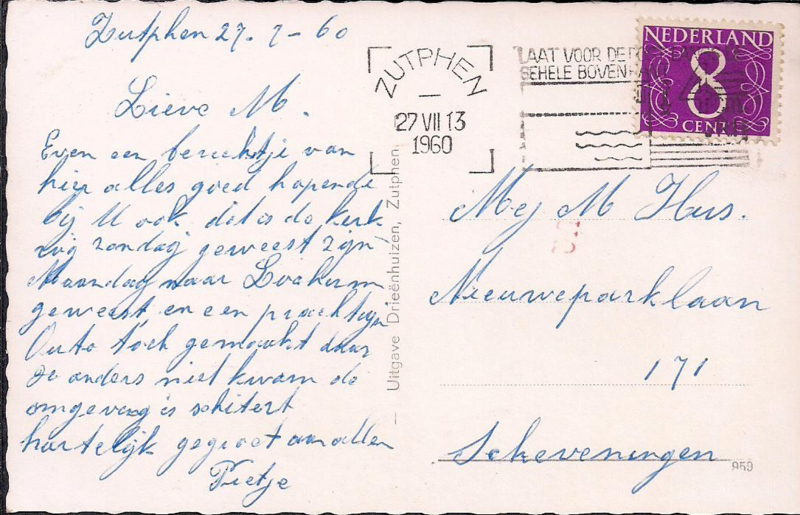 Zutphen 27-7-60
Lieve M.
Even een berichtje van
hier alles goed hopende
bij U ook dat is de kerk
zondag geweest zyn
Maandag naar Lochem
geweest en een prachtige
Auto toch gemaakt daar
ze anders niet kwam de
omgeving is schitert
hartelijk gegroet aan allen
Pietje
Uitgave Drieënhuizen, Zutphen
ZUTPHEN
27 VII 13
1960
LAAT VOOR DE PO
GEHELE BOVENKA
NEDERLAND
8
CENT
Mej M Hus.
Nieuweparklaan
171
Scheveningen
959